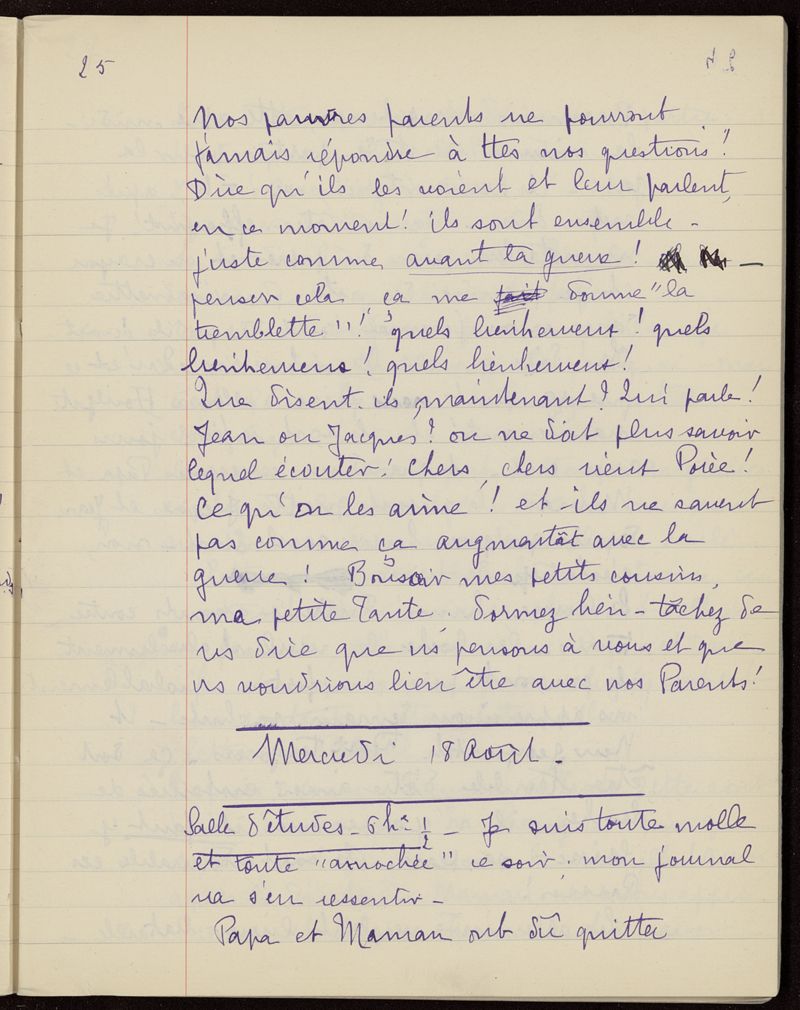 25
Nos pauvres parents ne pourront
jamais répondre à ttes nos questions !
Dire qu'ils les voient et leur parlent,
en ce moment ! ils sont ensemble -
juste comme avant la guerre ! —
penser cela, ça me fait donne "la
tremblette" ! quels heureux ! quels
! quels !
Que disent-ils maintenant ? Qui parle !
Jean ou Jacques ? on ne doit plus savoir
lequel écouter ! chers, chers vieux !
Ce qu'on les aime ! et ils ne savent
pas comme ça augmentât avec la
guerre ! Bonsoir mes petits cousins,
ma petite Tante. dormez bien - tâchez de
vs dire que ns pensons à vous et que
ns voudrions bien être avec nos Parents !
Mercredi 18 Août -
Salle d'études - 6 hes 1/2 - Je suis toute molle
et toute "amochée" ce soir ; mon journal
va s'en ressentir -
Papa et Maman ont dû quitter